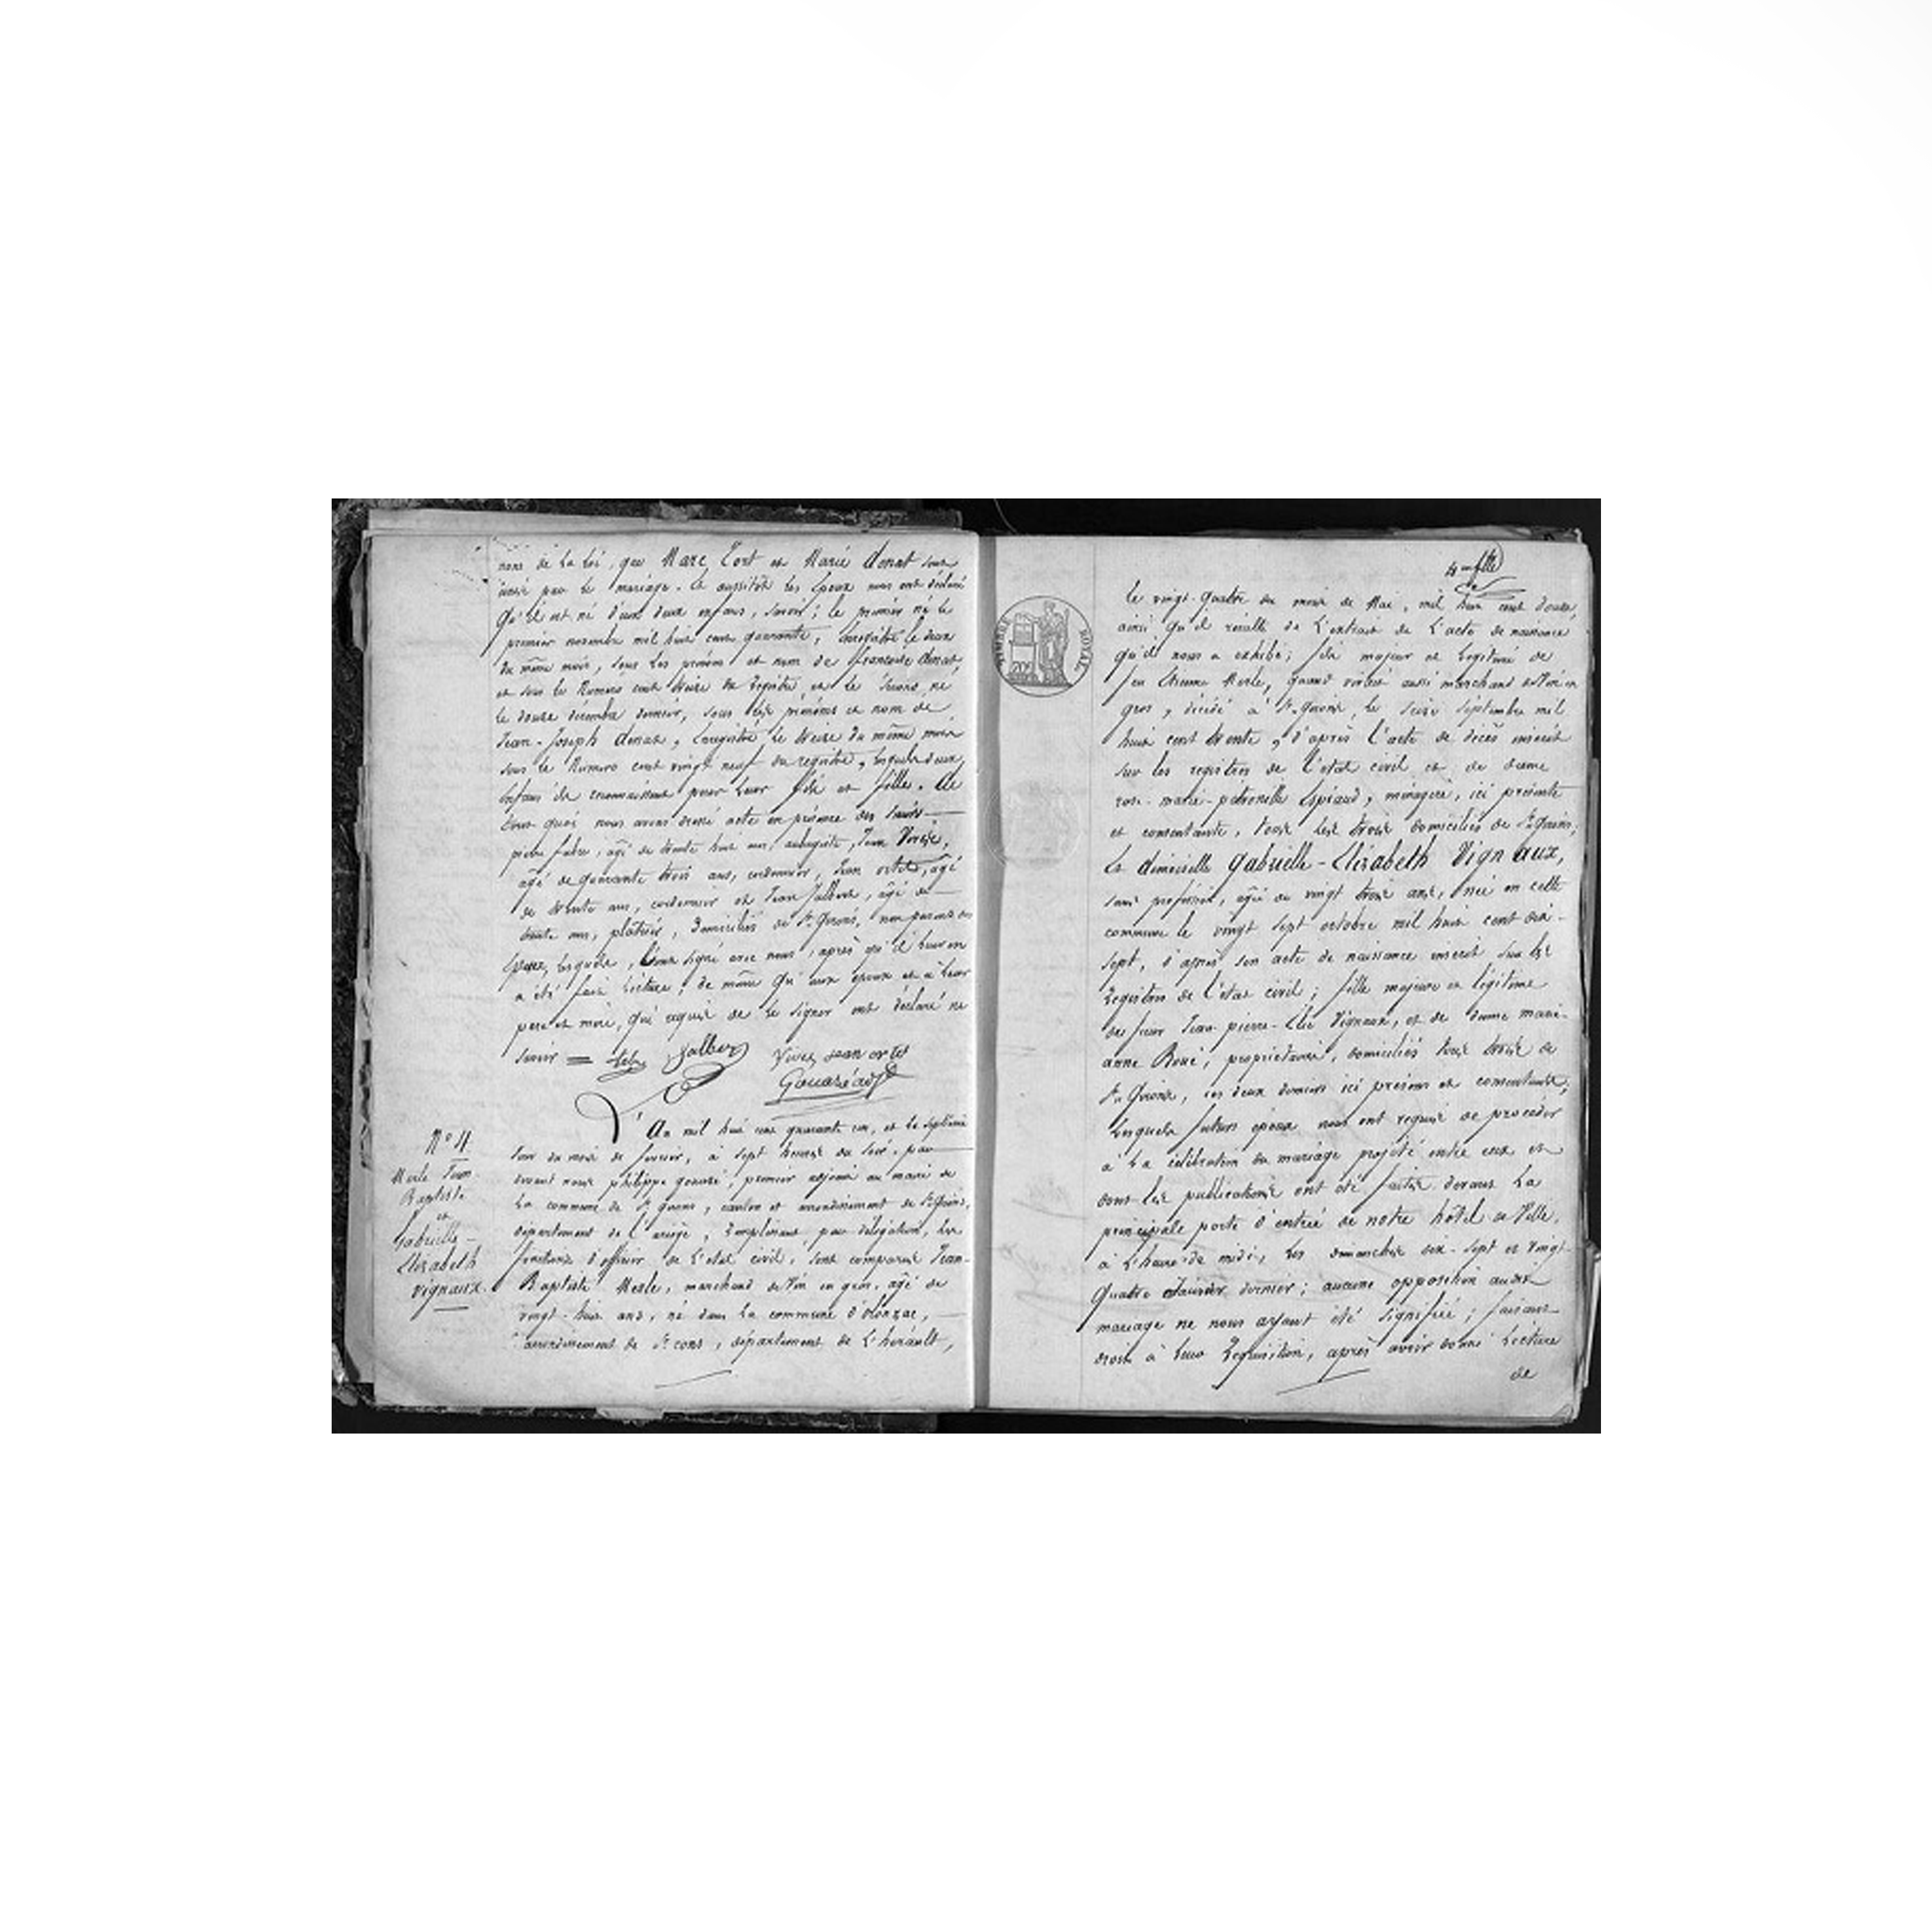 nom de la loi, que Marc Tort et Marie donat sont
unis par le mariage. Et aussitôt les époux nous ont déclaré
qu'il est né d'eux deux enfans, savoir; le premier né le
premier novembre mil huit cent quarante, enregistré le deux
du même mois, sous les prénom et nom de françoise donat,
et sous le Numéro cent treize du registre, et le second, né
le douze décembre dernier, sous les prénoms et nom de
Jean-Joseph donat, enregistré le treize du même mois
sous le Numero cent vingt neuf du registre, lesquels deux
enfans ils reconnaissent pour leur fils et fille. De
tout quoi nous avons dressé acte en présence des
âgé de trente huit ans, aubergiste, Jean
âgé de quarante trois ans, cordonnier, Jean ortet, âgé
de trente ans, cordonnier et Jean Jalbert, âgé de
trente ans, plâtrier, domiciliés de St. Girons, non parents des
époux, lesquels, l'ont signé avec nous, après qu'il leur en
a été fait lecture, de même qu'aux époux et à leur
père et mère, qui requis de le signer ont déclaré ne
savoir = Jalbert Vives Jean ortet
Gouazé adjt
L'An mil huit cent quarante un, et le septième
jour du mois de février, à sept heures du soir, par
devant nous philippe gouazé, premier adjoint au maire de
la commune de St. girons, canton et arrondissement de St. Girons,
département de l'ariège, remplissant, par délégation, les
fonctions d'officier de l'état civil, sont comparus Jean-
Baptiste Merle, marchand de Vin en gros, âgé de
vingt-huit ans, né dans la commune d'olonzac,
arrondissement de St. pons, département de l'hérault,
N° 11
Merle Jean
Baptiste
et
Gabrielle-
Elizabeth
vignaux.
le vingt-quatre du mois de Mai, mil huit cent douze,
ainsi qu'il résulte de l'extrait de l'acte de naissance
qu'il nous a exhibé; fils majeur et légitime de
feu Etienne Merle, quand vivait aussi marchand de Vin en
gros, décédé à St. Girons, le seize septembre mil
huit cent trente, d'après l'acte de décès inscrit
sur les registres de l'état civil et de dame
rose-marie-petronille Espéraud, ménagère, ici présente
et consentante, tous les trois domiciliés de St. Girons;
Et demoiselle Gabrielle-Elizabeth Vignaux,
sans profession, âgée de vingt trois ans, née en cette
commune le vingt sept octobre mil huit cent dix-
sept, d'après son acte de naissance inscrit sur les
registres de l'état civil; fille majeure et légitime
de sieur Jean-pierre-Elie Vignaux, et de dame marie-
anne Roué, propriétaires, domiciliés tous trois de
St. Girons, ces deux derniers ici présens et consentants;
lesquels futurs époux nous ont requis de procéder
à la célébration du mariage projeté entre eux et
dont les publications ont été faites devant la
principale porte d'entrée de notre hôtel de Ville,
à l'heure de midi, les dimanches dix-sept et vingt-
quatre Janvier dernier; aucune opposition audit
mariage ne nous ayant été signifiée; faisant
droit à leur réquisition, après avoir donné lecture
de
TIMBRE ROYAL